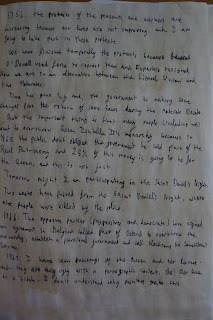 1856. The protests of the peasants and workers are
increasing because our lives are not improving and I am
going to take part in those protests.
We have finished temporally the protests, because General
O'Donell used force to repress them and Espartero resigned.
Now we are in an alternation between the Liberal Union and
the Moderates.
has gone by and the government is making some
changes like the return of some laws during the Moderate Decade.
But the important thing is that many people (including me)
want to overthrow Queen Isabella II's monarchy because in
1865 the public debt obliged the government to sold place of the
Royal Patrimony and 25% of this money is going to be for
the Queen, and this is not just.
Tomorrow night I am participating in the Saint Daniel's Night.
Two weeks have passed from the Saint Daniel's Night, where
nine people were killed by the police.
1866. The opposition parties (progressives and democrats) have signed
an agreement in Belgium called Pact of Ostend to overthrow the
monarchy, establish a provisional government and call elections for Constituent
Cortes.
1867. I have seen paintings of the Queen and her
and they are ugly with a pornographic content. The Queen
is a bitch. I don't understand why painting people this